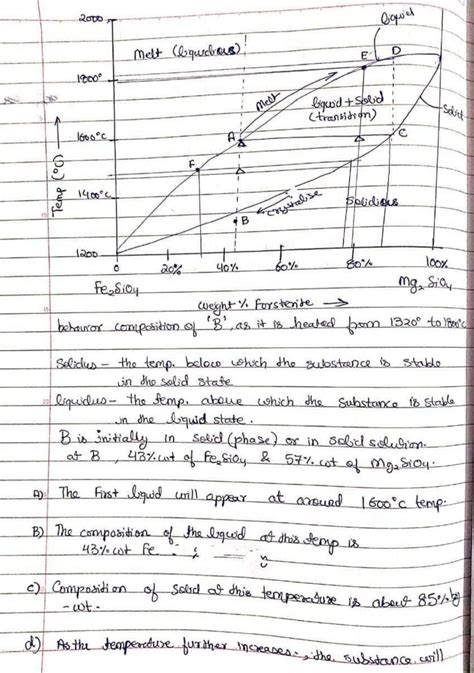 2000
liquid
Melt (liquidious)
E
D
1800°
Melt
liquid + solid
(transition)
Solid
1600°C
A
C
F
Temp (°C) →
1400°C
Crystalise
Solidious
B
1200
0 20% 40% 60% 80% 100%
Fe₂SiO₄ Mg₂SiO₄
weight % Forsterite →
behavior composition of 'B', as it is heated from 1320° to 1800°C
Solidus - the temp. below which the substance is stable
in the solid state
liquidus - the temp. above which the substance is stable
in the liquid state.
B is initially in solid (phase) or in solid solution.
at B, 43% wt of Fe₂SiO₄ & 57% wt of Mg₂SiO₄.
A) The First liquid will appear at around 1600°C temp.
B) The composition of the liquid at this temp is
43% wt Fe.
c) Composition of solid at this temperature is about 85% by
- wt.
d) As the temperature further increases, the substance will